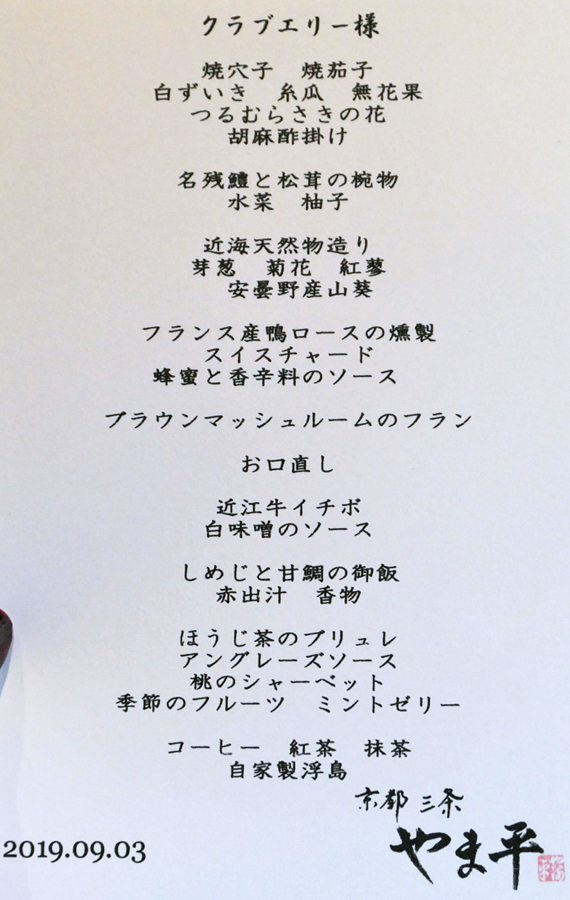 クラブエリー様
焼穴子　焼茄子
白ずいき　糸瓜　無花果
つるむらさきの花
胡麻酢掛け
名残鱧と松茸の椀物
水菜　柚子
近海天然物造り
芽葱　菊花　紅蓼
安曇野産山葵
フランス産鴨ロースの燻製
スイスチャード
蜂蜜と香辛料のソース
ブラウンマッシュルームのフラン
お口直し
近江牛イチボ
白味噌のソース
しめじと甘鯛の御飯
赤出汁　香物
ほうじ茶のブリュレ
アングレーズソース
桃のシャーベット
季節のフルーツ　ミントゼリー
コーヒー　紅茶　抹茶
自家製浮島
京都 三条
やま平
2019.09.03